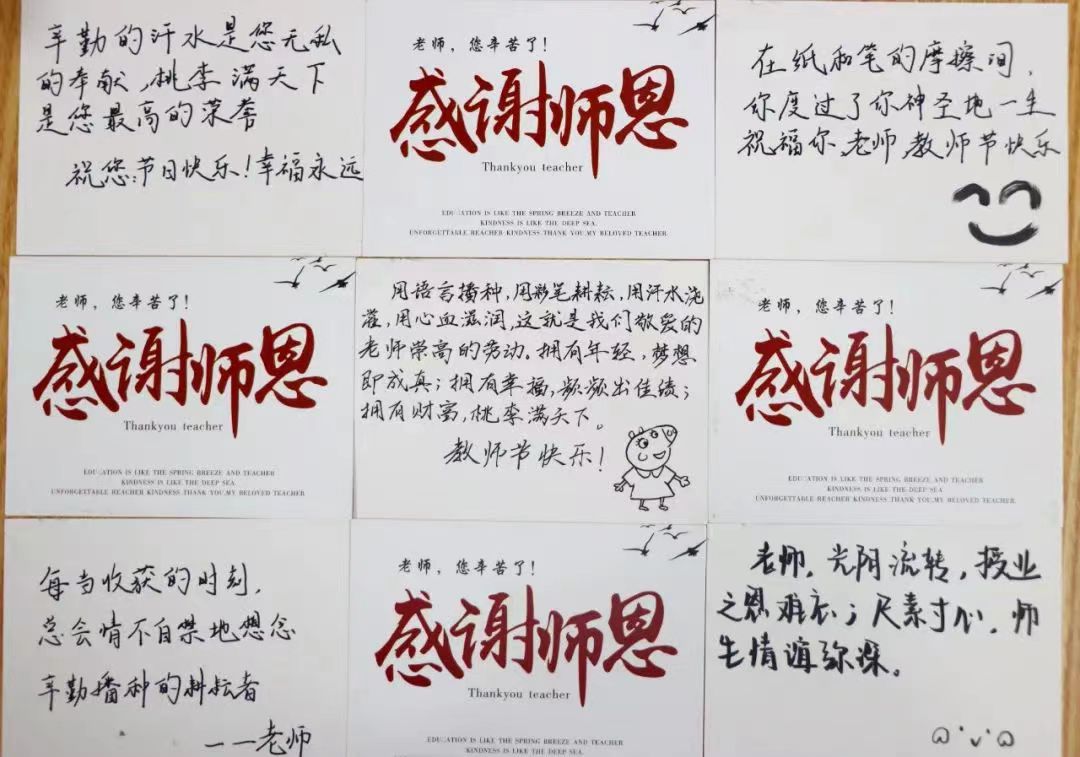 辛勤的汗水是您无私
的奉献,桃李满天下
是您最高的荣誉
祝您:节日快乐!幸福永远
老师，您辛苦了!
感谢师恩
Thankyou teacher
EDUCATION IS LIKE THE SPRING BREEZE AND TEACHER
KINDNESS IS LIKE THE DEEP SEA.
UNFORGETTABLE REACHER KINDNESS THANK YOU.MY BELOVED TEACHER
在纸和笔的摩擦间,
你度过了你神圣地一生
祝福你,老师,教师节快乐
老师，您辛苦了!
感谢师恩
Thankyou teacher
EDUCATION IS LIKE THE SPRING BREEZE AND TEACHER
KINDNESS IS LIKE THE DEEP SEA.
UNFORGETTABLE REACHER KINDNESS THANK YOU.MY BELOVED TEACHER
用语言播种,用彩笔耕耘,用汗水浇
灌,用心血滋润,这就是我们敬爱的
老师崇高的劳动。拥有年轻,梦想
即成真;拥有幸福,频频出佳绩;
拥有财富,桃李满天下。
教师节快乐!
老师，您辛苦了!
感谢师恩
Thankyou teacher
EDUCATION IS LIKE THE SPRING BREEZE AND TEACHER
KINDNESS IS LIKE THE DEEP SEA.
UNFORGETTABLE REACHER KINDNESS THANK YOU.MY BELOVED TEACHER
每当收获的时刻,
总会情不自禁地想念
辛勤播种的耕耘者
——老师
老师，您辛苦了!
感谢师恩
Thankyou teacher
EDUCATION IS LIKE THE SPRING BREEZE AND TEACHER
KINDNESS IS LIKE THE DEEP SEA.
老师,光阴流转,授业
之恩难忘;尺素寸心,师
生情谊弥深。